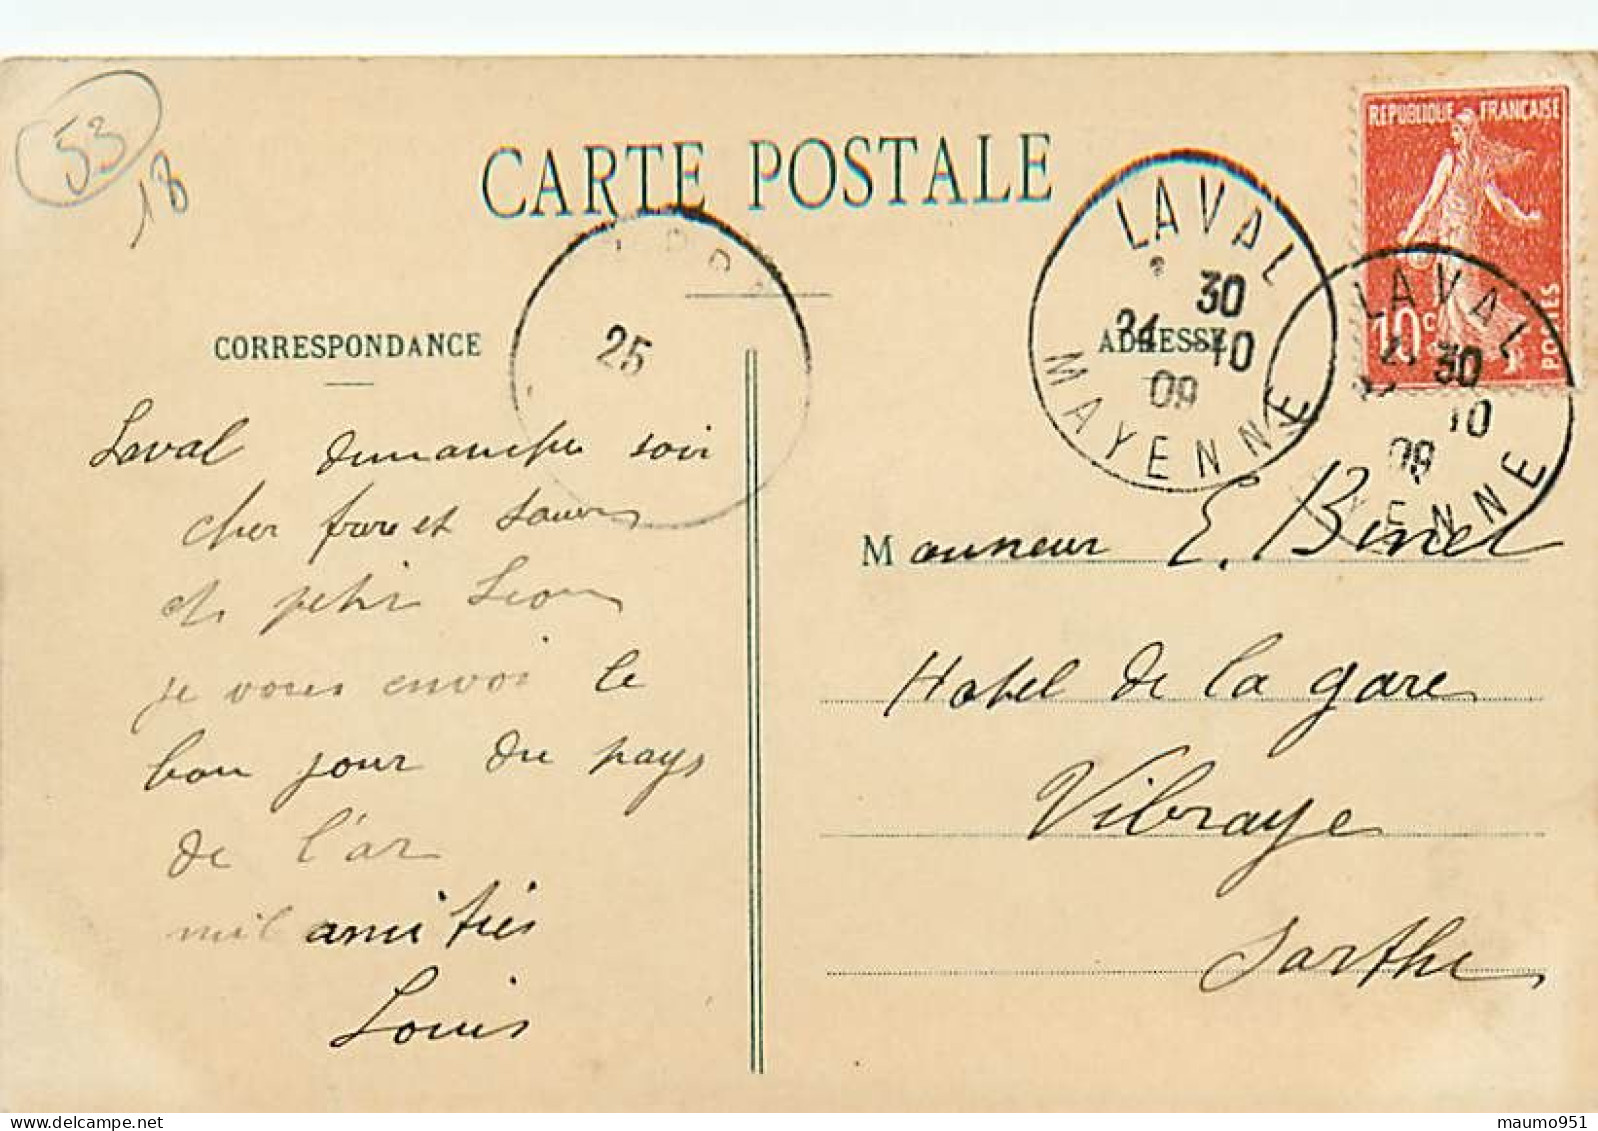 53
18
CARTE POSTALE
REPUBLIQUE FRANÇAISE
10 c
POSTES
LAVAL
30
24 10
09
MAYENNE
LAVAL
30
10
09
YENNE
25
CORRESPONDANCE
ADRESSE
Laval dimanche soir
cher frere et Soeur
et petit Leon
je vous envoi le
bon jour du pays
de l'ar
mil amitiés
Louis
Monsieur E. Binet
Hotel de la gare
Vibraye
Sarthe
maumo951